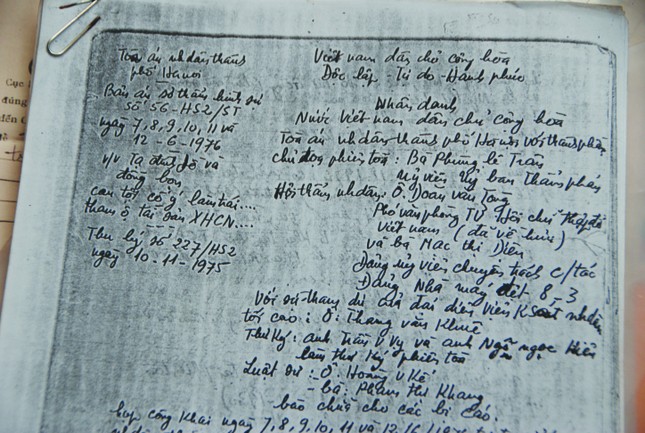 Cục
đúng
Tòa án nhân dân thành
phố Hanoi
Bản án sơ thẩm hình sự
số 56-HS2/ST
ngày 7, 8, 9, 10, 11 và
12-6-1976
v/v Tạ đình Đề và
đồng bọn
can tội cố ý làm trái....
tham ô tài sản XHCN....
Thụ lý số 227/HS2
ngày 10-11-1975
Việt nam dân chủ cộng hòa
Độc lập - Tự do - Hạnh phúc
Nhân danh
Nước Việt nam dân chủ cộng hòa
Tòa án nhân dân thành phố Hà nội với thành phần
chủ tọa phiên tòa: Bà Phùng Lê Trân
ủy viên ủy ban thẩm phán
Hội thẩm nhân dân: Ô. Doãn văn Tòng
Phó văn phòng TƯ Hội chữ thập đỏ
Việt nam (đã về hưu)
và bà Mac thi Diên
Đảng ủy viên chuyên trách c/tác
Đảng Nhà máy dệt 8_3
Với sự tham dự của đại diện viện K Soát nhân dân
tối cao: Ô. Thang văn Khuê
Thư ký: anh Trần V Vy và anh Ngọc Hiên
làm thư ký phiên tòa
Luật sư: Ô. Hoàng V Kế
- bà: Phạm thi Khang
bào chữa cho các bị cáo.
họp công khai ngày 7, 8, 9, 10, 11 và 12-